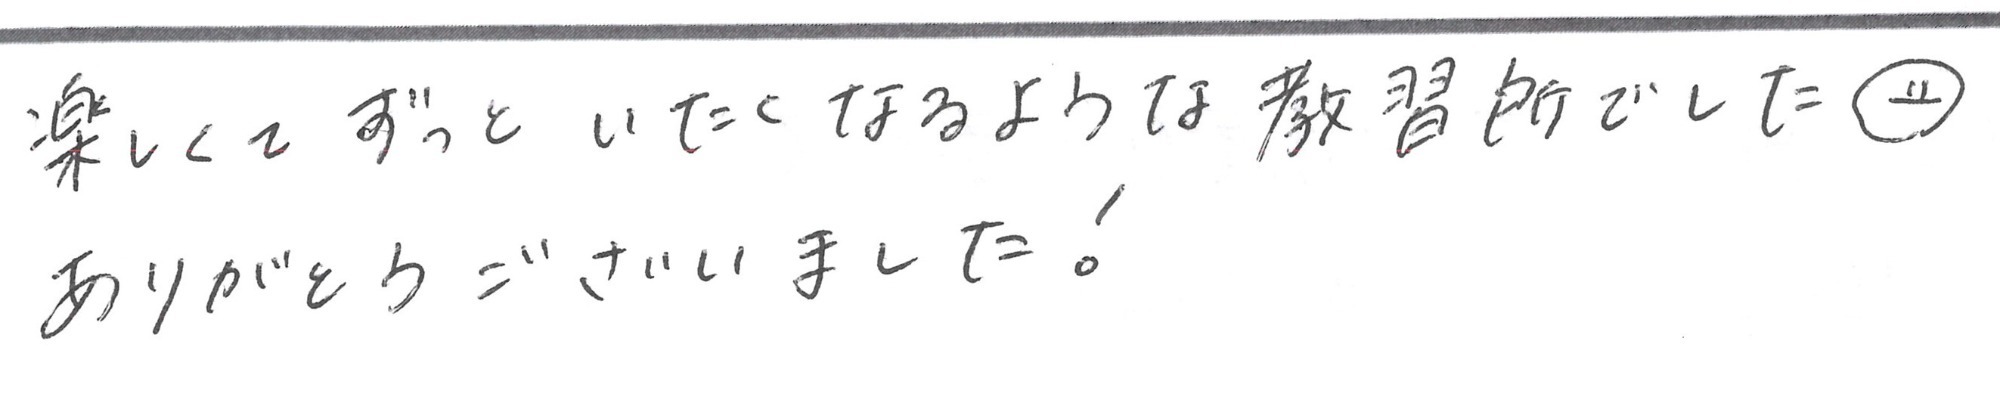 楽しくてずっといたくなるような教習所でした
ありがとうございました!